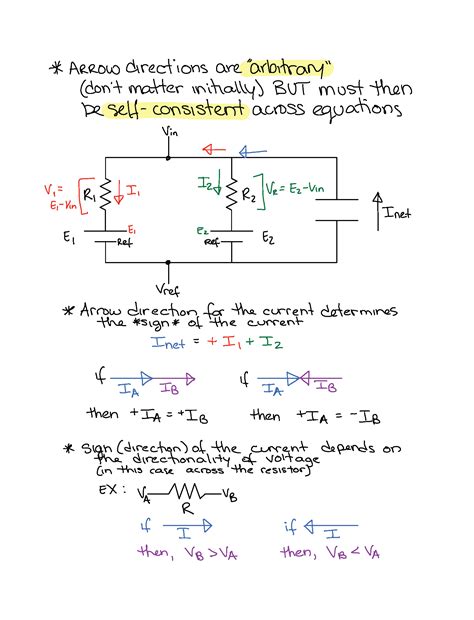 * Arrow directions are "arbitrary"
(don't matter initially) BUT must then
be self-consistent across equations
Vin
V1 =
E1-Vin
R1
I1
I2
R2
VR = E2-Vin
Inet
E1
E1
Ref
E2
Ref
E2
Vref
* Arrow direction for the current determines
the *sign* of the current
Inet = + I1 + I2
if IA IB
if IA IB
then +IA = +IB
then +IA = -IB
* Sign (direction) of the current depends on
the directionality of voltage
(in this case across the resistor)
EX: VA VB
R
if I
if I
then, VB > VA
then, VB < VA